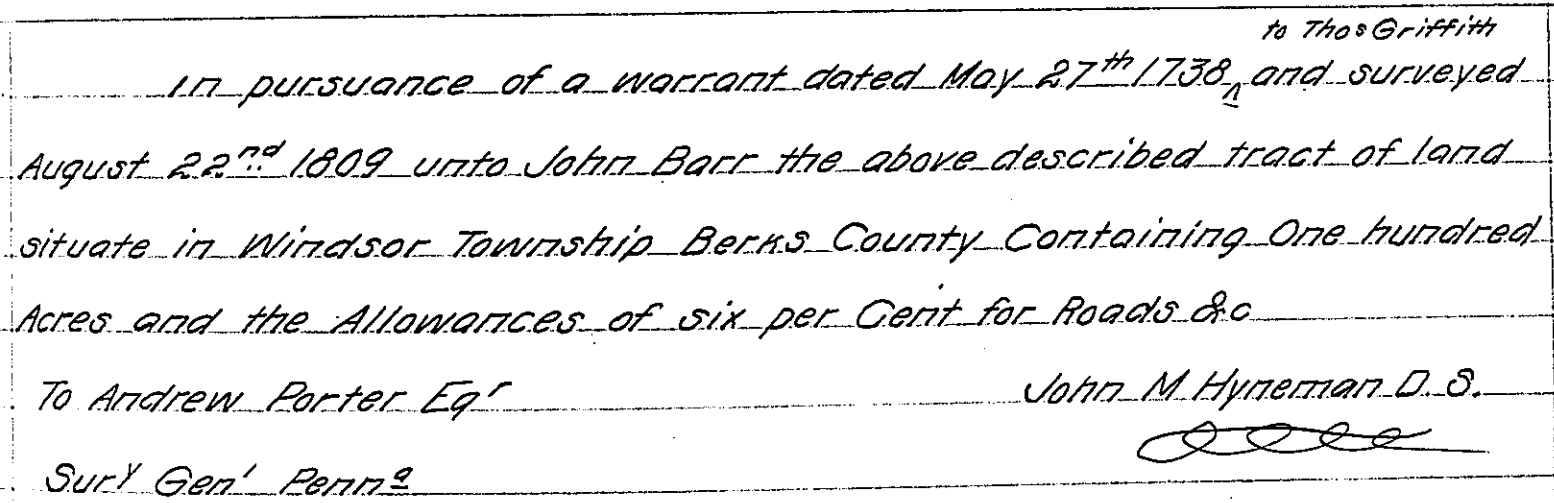 to Thos Griffith
In pursuance of a warrant dated May 27th 1738 ^ and surveyed
August 22nd 1809 unto John Barr the above described tract of land
situate in Windsor Township Berks County Containing One hundred
Acres and the Allowances of six per Cent for Roads &c
To Andrew Porter Eqr John M Hyneman D.S.
Sury Genl Penna